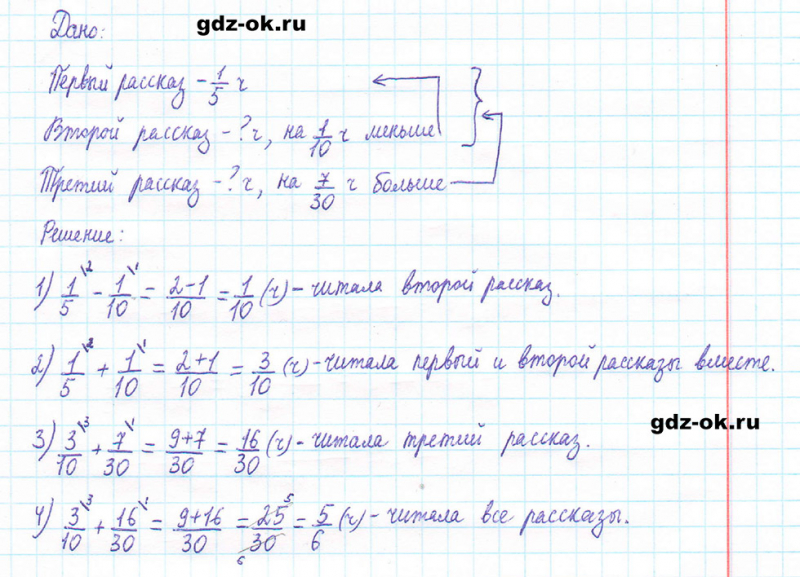 Дано:
gdz-ok.ru
Первый рассказ - 1/5 ч
Второй рассказ - ? ч, на 1/10 ч меньше
Третий рассказ - ? ч, на 7/30 ч больше
Решение:
1) 1/5\2 - 1/10\1 = 2-1/10 = 1/10 (ч) - читала второй рассказ.
2) 1/5\2 + 1/10\1 = 2+1/10 = 3/10 (ч) - читала первый и второй рассказы вместе.
gdz-ok.ru
3) 3/10\3 + 7/30\1 = 9+7/30 = 16/30 (ч) - читала третий рассказ.
4) 3/10\3 + 16/30\1 = 9+16/30 = 25 5/30 6 = 5/6 (ч) - читала все рассказы.